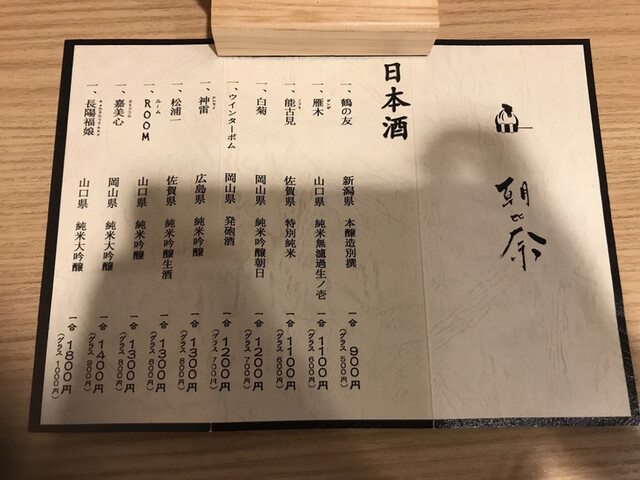 朝比奈
日本酒
一、鶴の友 新潟県 本醸造別撰 一合 900円 (グラス 500円)
一、雁木 山口県 純米無濾過生ノ壱 一合 1100円 (グラス 600円)
一、能古見 佐賀県 特別純米 一合 1100円 (グラス 600円)
一、白菊 岡山県 純米吟醸朝日 一合 1200円 (グラス 700円)
一、ウインターボム 岡山県 発砲酒 一合 1200円 (グラス 700円)
一、神雷 広島県 純米吟醸 一合 1300円 (グラス 800円)
一、松浦一 佐賀県 純米吟醸生酒 一合 1300円 (グラス 800円)
一、ROOM ルーム 山口県 純米吟醸 一合 1300円 (グラス 800円)
一、嘉美心 岡山県 純米大吟醸 一合 1400円 (グラス 900円)
一、長陽福娘 山口県 純米大吟醸 一合 1800円 (グラス 1000円)